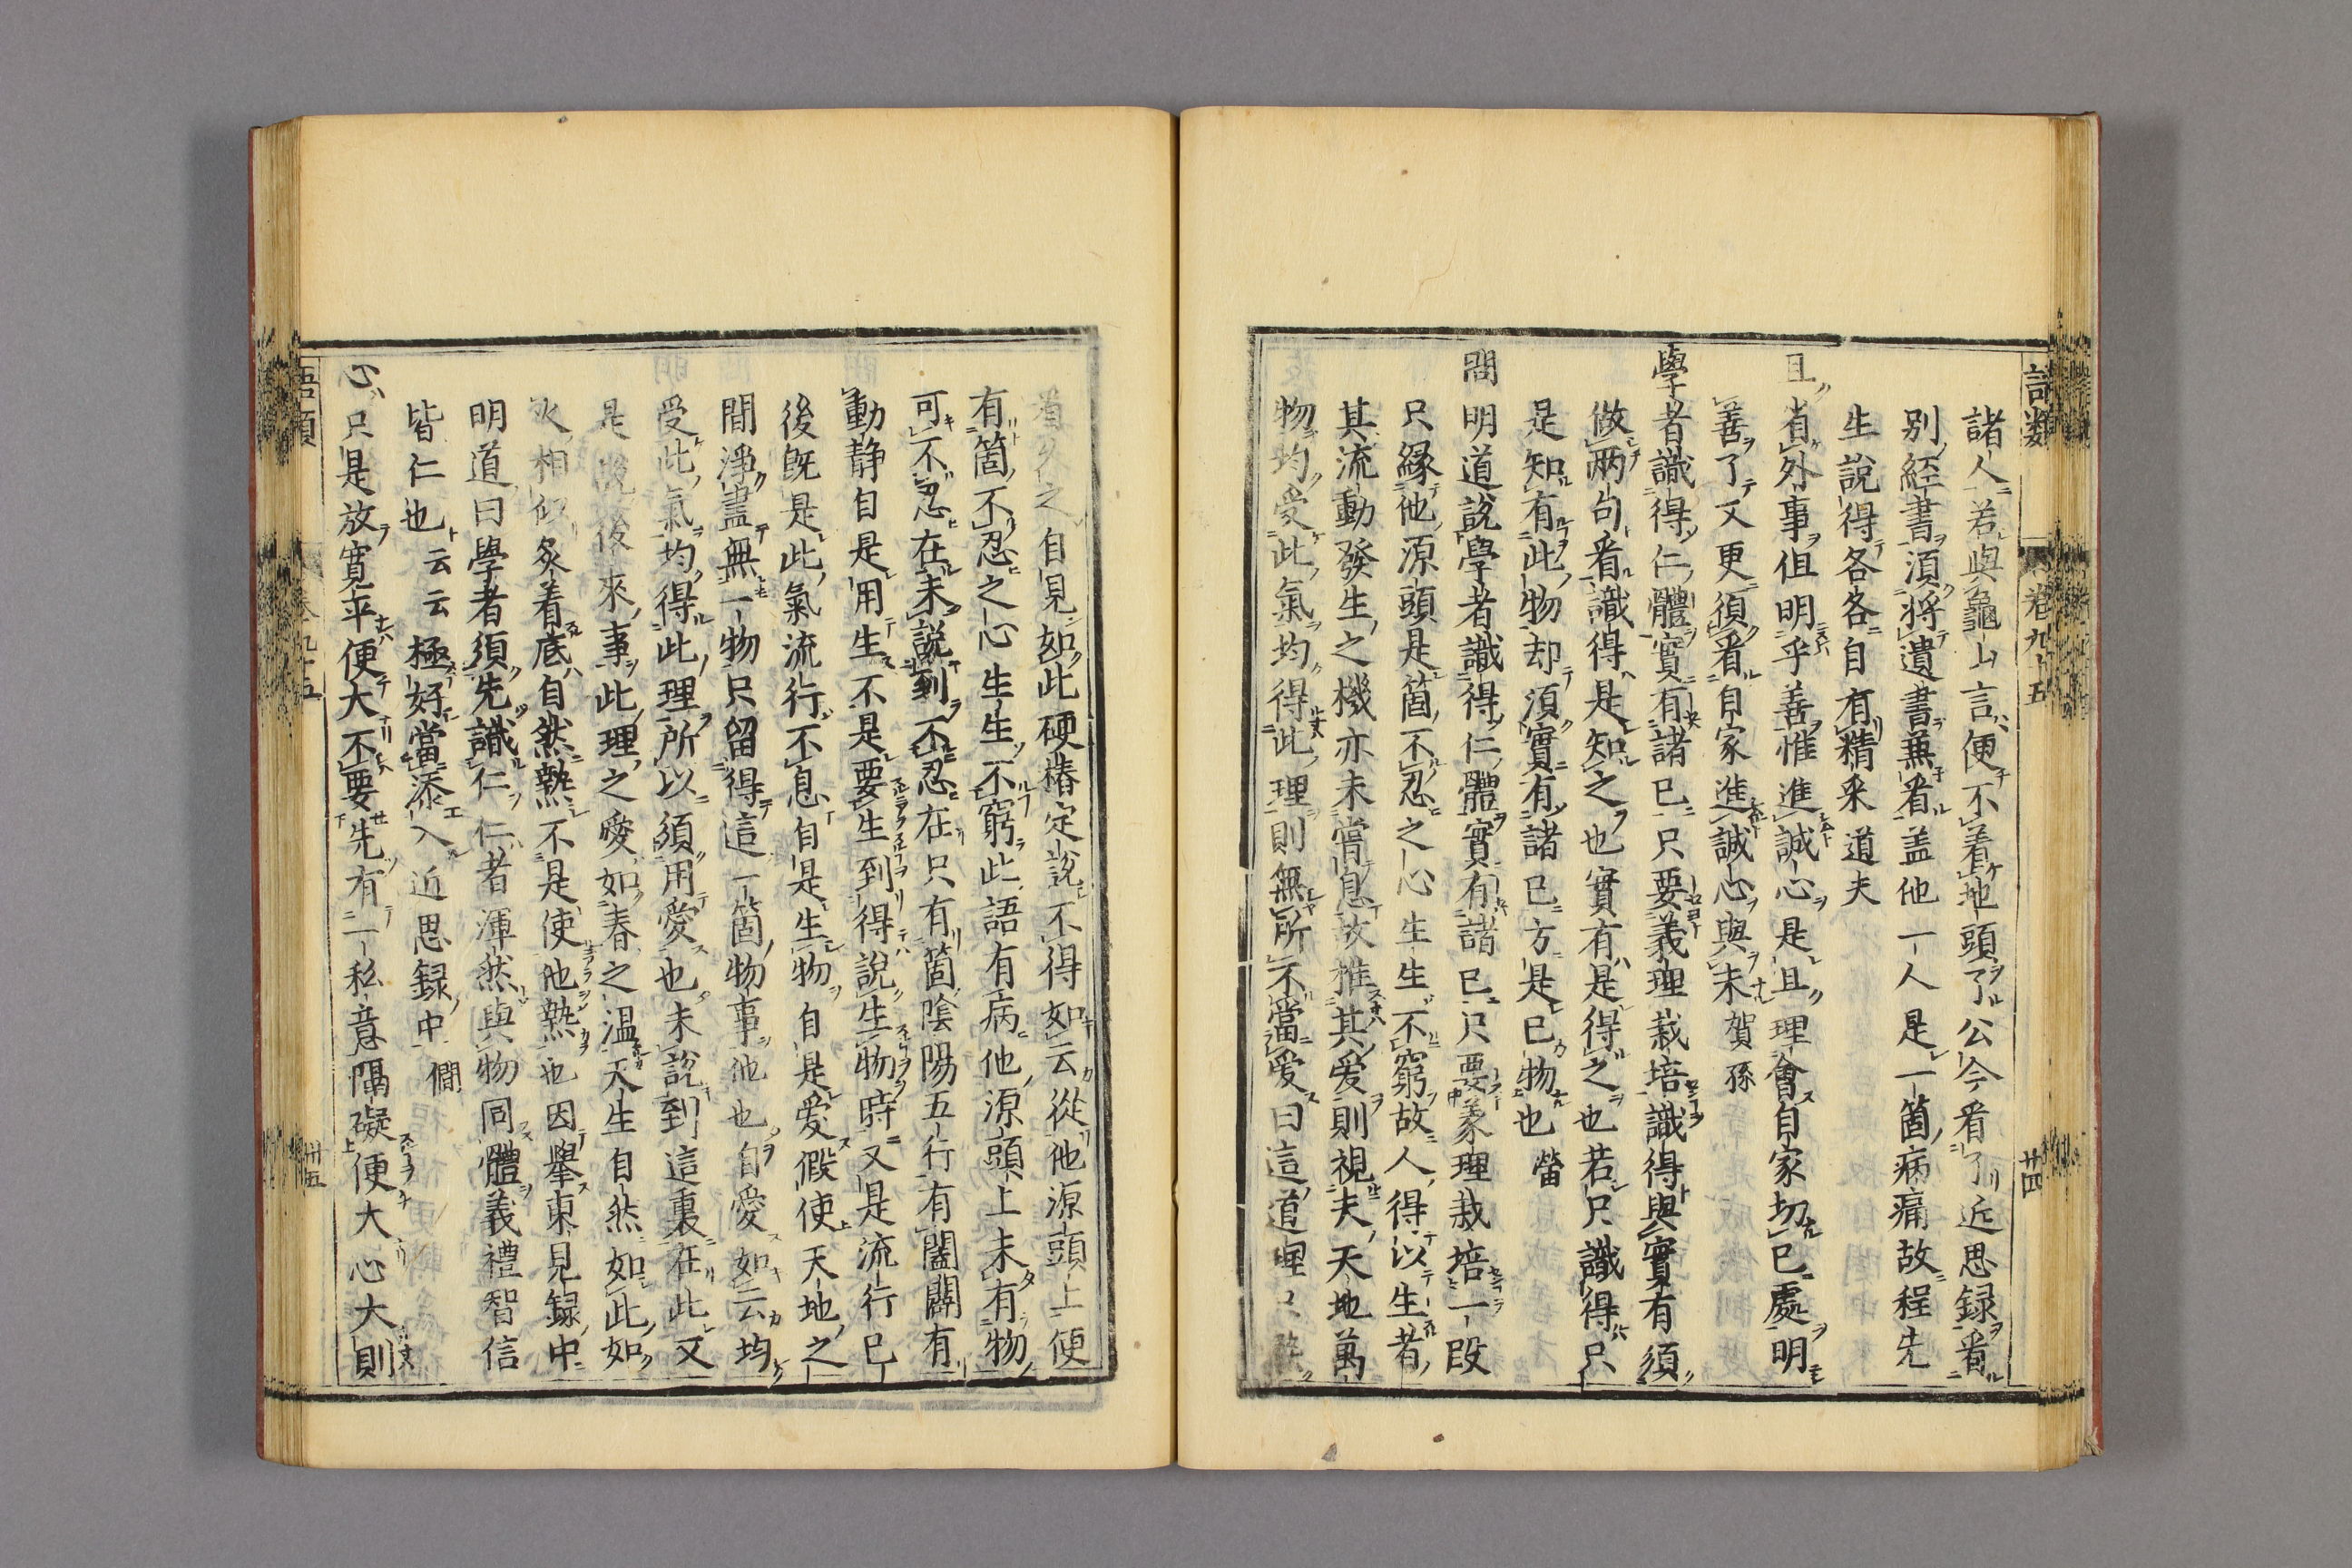 語類 卷九十五 廿四
諸人若與龜山言便不着地頭了公今看了近思録看
别經書須將遺書兼看盖他一人是一箇病痛故程先
生說得各各自有精采 道夫
且省外事但明乎善惟進誠心是且理會自家切已處明
善了又更須看自家進誠心與未 賀孫
學者識得仁體實有諸已只要義理栽培識得與實有須
做兩句看識得是知之也實有是得之也若只識得只
是知有此物却須實有諸已方是已物也 㽦
問明道說學者識得仁體實有諸已只要義理栽培一段
只緣他源頭是箇不忍之心生生不窮故人得以生者
其流動發生之機亦未嘗息故推其愛則視夫天地萬
物均受此氣均得此理則無所不當愛曰這道理
之自見如此硬椿定說不得如云從他源頭上便
有箇不忍之心生生不窮此語有病他源頭上未有物
可不忍在未說到不忍在只有箇陰陽五行有闔闢有
動静自是用生不是要生到得說生物時又是流行已
後既是此氣流行不息自是生物自是愛假使天地之
間淨盡無一物只留得這一箇物事他也自愛如云均
受此氣均得此理所以須用愛也未說到這裏在此又
是說後來事此理之愛如春之温天生自然如此如
火相似炙着底自然熱不是使他熱也因舉東見録中
明道曰學者須先識仁仁者渾然與物同體義禮智信
皆仁也云云極好當添入近思録中 僩
心只是放寬平便大不要先有一私意隔礙便大心大則
語類 卅五